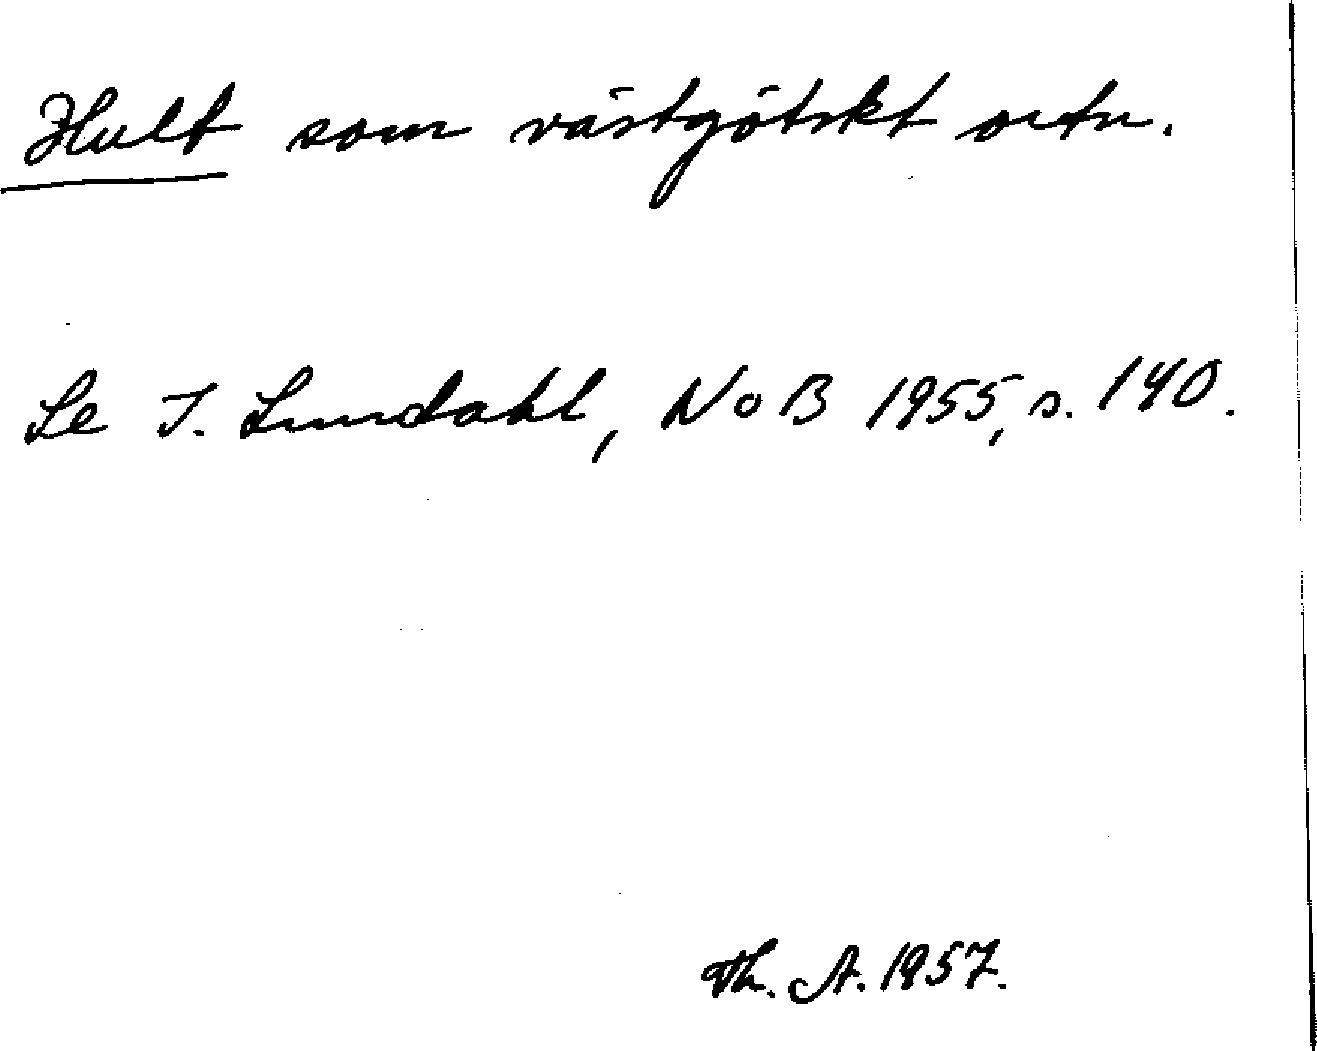 Hult som västgötskt ortn.
Se I. Lundahl, NoB 1955, s. 140.
Th. A. 1957.